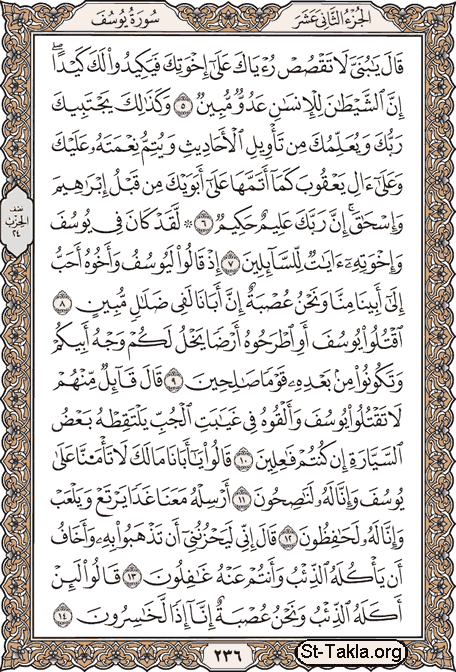 الجُزْءُ الثَّانِي عَشَرَ
سُورَةُ يُوسُفَ
قَالَ يَٰبُنَيَّ لَا تَقْصُصْ رُءْيَاكَ عَلَىٰٓ إِخْوَتِكَ فَيَكِيدُوا۟ لَكَ كَيْدًا ۖ
إِنَّ ٱلشَّيْطَٰنَ لِلْإِنسَٰنِ عَدُوٌّ مُّبِينٌ ٥ وَكَذَٰلِكَ يَجْتَبِيكَ
رَبُّكَ وَيُعَلِّمُكَ مِن تَأْوِيلِ ٱلْأَحَادِيثِ وَيُتِمُّ نِعْمَتَهُۥ عَلَيْكَ
وَعَلَىٰٓ ءَالِ يَعْقُوبَ كَمَآ أَتَمَّهَا عَلَىٰٓ أَبَوَيْكَ مِن قَبْلُ إِبْرَٰهِيمَ
وَإِسْحَٰقَ ۚ إِنَّ رَبَّكَ عَلِيمٌ حَكِيمٌ ٦ ۞ لَّقَدْ كَانَ فِى يُوسُفَ
وَإِخْوَتِهِۦٓ ءَايَٰتٌ لِّلسَّآئِلِينَ ٧ إِذْ قَالُوا۟ لَيُوسُفُ وَأَخُوهُ أَحَبُّ
إِلَىٰٓ أَبِينَا مِنَّا وَنَحْنُ عُصْبَةٌ إِنَّ أَبَانَا لَفِى ضَلَٰلٍ مُّبِينٍ ٨
ٱقْتُلُوا۟ يُوسُفَ أَوِ ٱطْرَحُوهُ أَرْضًا يَخْلُ لَكُمْ وَجْهُ أَبِيكُمْ
وَتَكُونُوا۟ مِنۢ بَعْدِهِۦ قَوْمًا صَٰلِحِينَ ٩ قَالَ قَآئِلٌ مِّنْهُمْ
لَا تَقْتُلُوا۟ يُوسُفَ وَأَلْقُوهُ فِى غَيَٰبَتِ ٱلْجُبِّ يَلْتَقِطْهُ بَعْضُ
ٱلسَّيَّارَةِ إِن كُنتُمْ فَٰعِلِينَ ١٠ قَالُوا۟ يَٰٓأَبَانَا مَالَكَ لَا تَأْمَ۫نَّا عَلَىٰ
يُوسُفَ وَإِنَّا لَهُۥ لَنَٰصِحُونَ ١١ أَرْسِلْهُ مَعَنَا غَدًا يَرْتَعْ وَيَلْعَبْ
وَإِنَّا لَهُۥ لَحَٰفِظُونَ ١٢ قَالَ إِنِّى لَيَحْزُنُنِىٓ أَن تَذْهَبُوا۟ بِهِۦ وَأَخَافُ
أَن يَأْكُلَهُ ٱلذِّئْبُ وَأَنتُمْ عَنْهُ غَٰفِلُونَ ١٣ قَالُوا۟ لَئِنْ
أَكَلَهُ ٱلذِّئْبُ وَنَحْنُ عُصْبَةٌ إِنَّآ إِذًا لَّخَٰسِرُونَ ١٤
نصف
الحزب
٢٤
٢٣٦
St-Takla.org